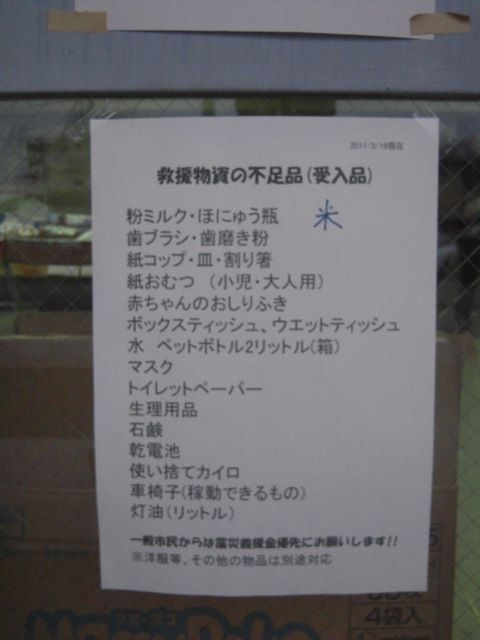 2011/3/18現在
救援物資の不足品(受入品)
粉ミルク・ほにゅう瓶 米
歯ブラシ・歯磨き粉
紙コップ・皿・割り箸
紙おむつ (小児・大人用)
赤ちゃんのおしりふき
ボックスティッシュ、ウエットティッシュ
水 ペットボトル2リットル(箱)
マスク
トイレットペーパー
生理用品
石鹸
乾電池
使い捨てカイロ
車椅子(稼動できるもの)
灯油(リットル)
一般市民からは震災救援金優先にお願いします!!
※洋服等、その他の物品は別途対応
4袋入